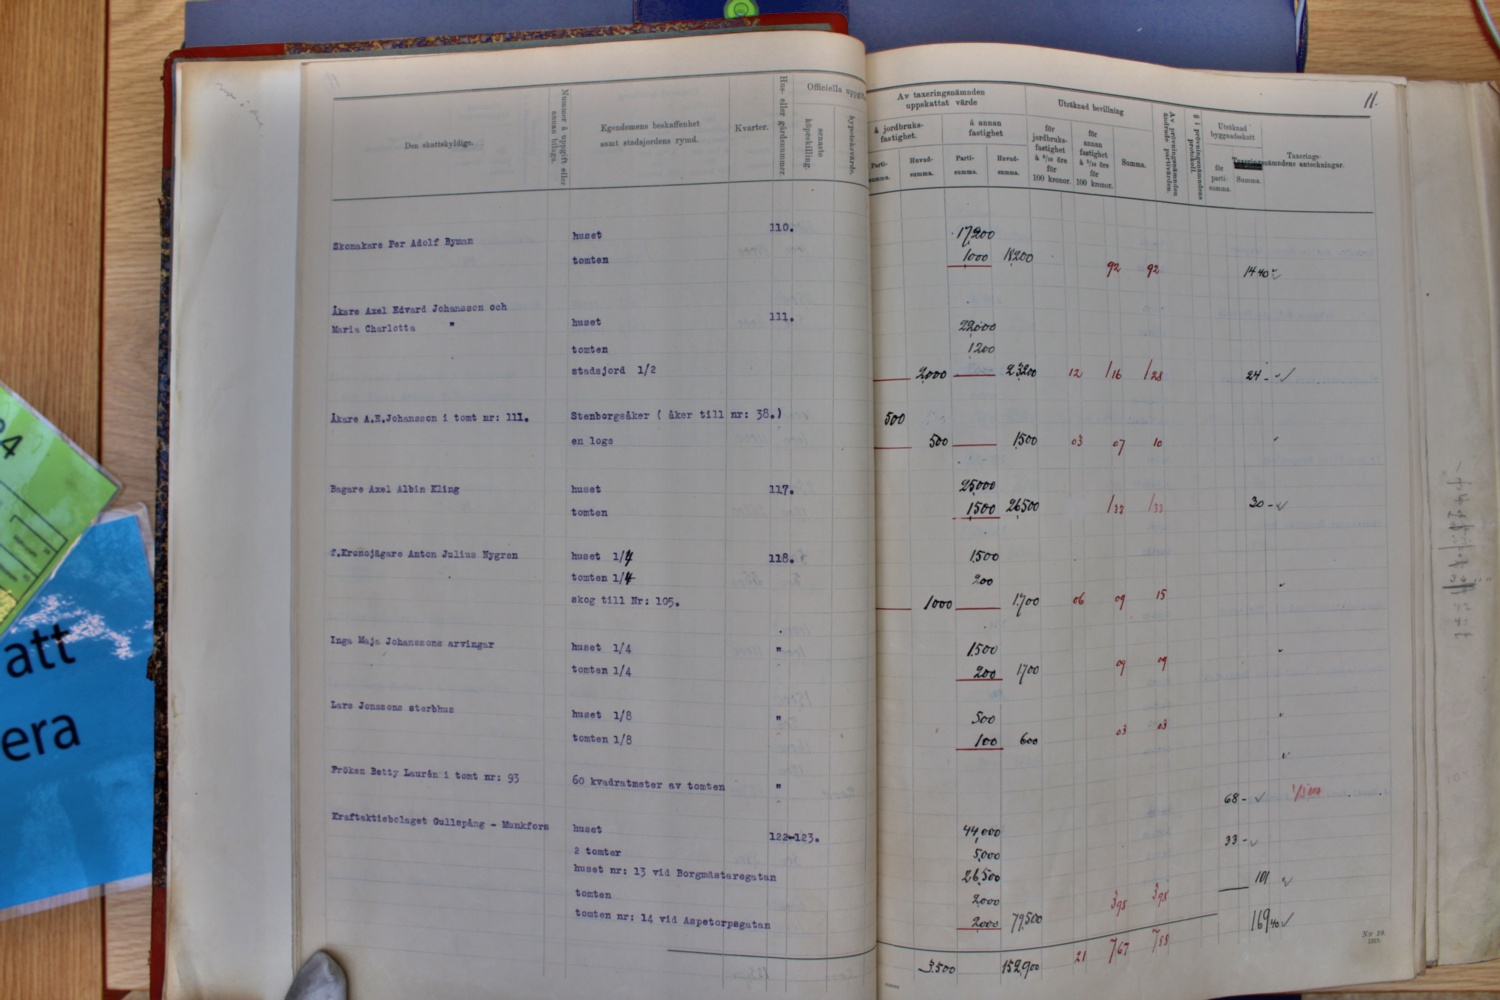 11.
Den skattskyldige.
Nummer å uppgift eller annan bilaga.
Egendomens beskaffenhet
samt stadsjordens rymd.
Kvarter.
Hus- eller gårdsnummer.
Officiella
senaste köpeskilling.
hypoteksvärde.
Av taxeringsnämnden
uppskattat värde
å jordbruks-
fastighet.
å annan
fastighet
Parti-
summa.
Huvud-
summa.
Parti-
summa.
Huvud-
summa.
Uträknad bevillning
för
jordbruks-
fastighet
för
100 kronor.
för
annan
fastighet
för
100 kronor.
Summa.
Uträknad
byggnadsskatt
för
parti-
summa.
Summa.
Taxerings-
nämndens anteckningar.
Skomakare Per Adolf Byman huset 110. 17,200
tomten 1000 18,200 92 92 14 40
Åkare Axel Edvard Johansson och
Maria Charlotta " huset 111. 22,000
tomten 1200
stadsjord 1/2 2,000 23,200 12 1/16 1/28 24-
Åkare A.E.Johansson i tomt nr: 111. Stenborgsåker ( åker till nr: 38.) 500
en loge 500 1500 03 07 10
Bagare Axel Albin Kling huset 117. 25,000
tomten 1500 26,500 1/33 1/33 30-
f.Kronojägare Anton Julius Nygren huset 1/4 118. 1,500
tomten 1/4 200
skog till Nr: 105. 1000 1,700 06 09 15
Inga Maja Johanssons arvingar huset 1/4 " 1,500
tomten 1/4 200 1700 09 09
Lars Jonssons sterbhus huset 1/8 " 500
tomten 1/8 100 600 03 03
Fröken Betty Laurén i tomt nr: 93 60 kvadratmeter av tomten "
68-
Kraftaktiebolaget Gullspång - Munkfors huset 122-123. 44,000
2 tomter 5,000 33-
huset nr: 13 vid Borgmästaregatan 26,500
tomten 2,000 3/98 3/98 101
tomten nr: 14 vid Aspetorpsgatan 2,000 79,500 169,40
3,500 152,900 21 7/67 7/88
No 29.
att
era